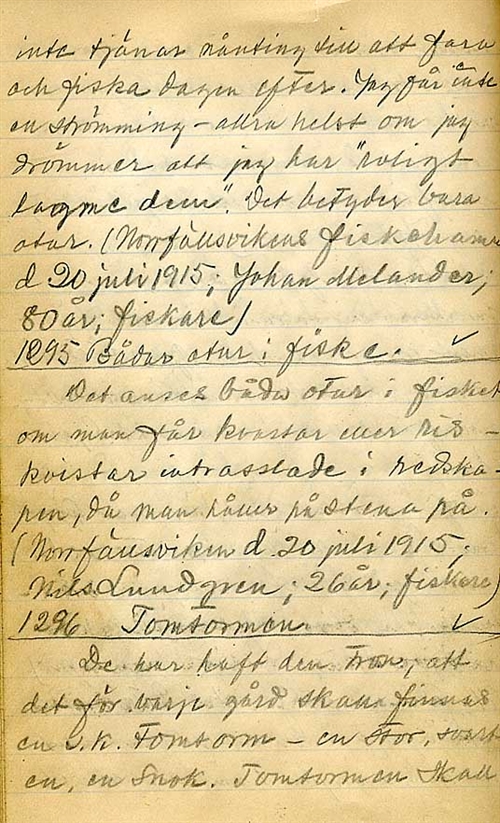 inte tjänar nånting till att fara
och fiska dagen efter. Jag får inte
en strömming - allra helst om jag
drömmer att jag har "roligt
me dem". Det betyder bara
otur. (Norrfällsvikens fiskehamn
d 20 juli 1915; Johan Melander;
80 år; fiskare)
1295 Bådar otur i fiske. ✓
Det anses båda otur i fisket
om man får kvastar eller ris-
kvistar intrasslade i redska-
pen, då man håller på stena på.
(Norrfällsviken d. 20 juli 1915;
Nils Lundgren; 26 år; fiskare)
1296 Tomtormen ✓
De har haft den tron, att
det för varje gård skall finnas
en s.k. Tomtorm - en stor, svart
en, en Snok. Tomtormen skall